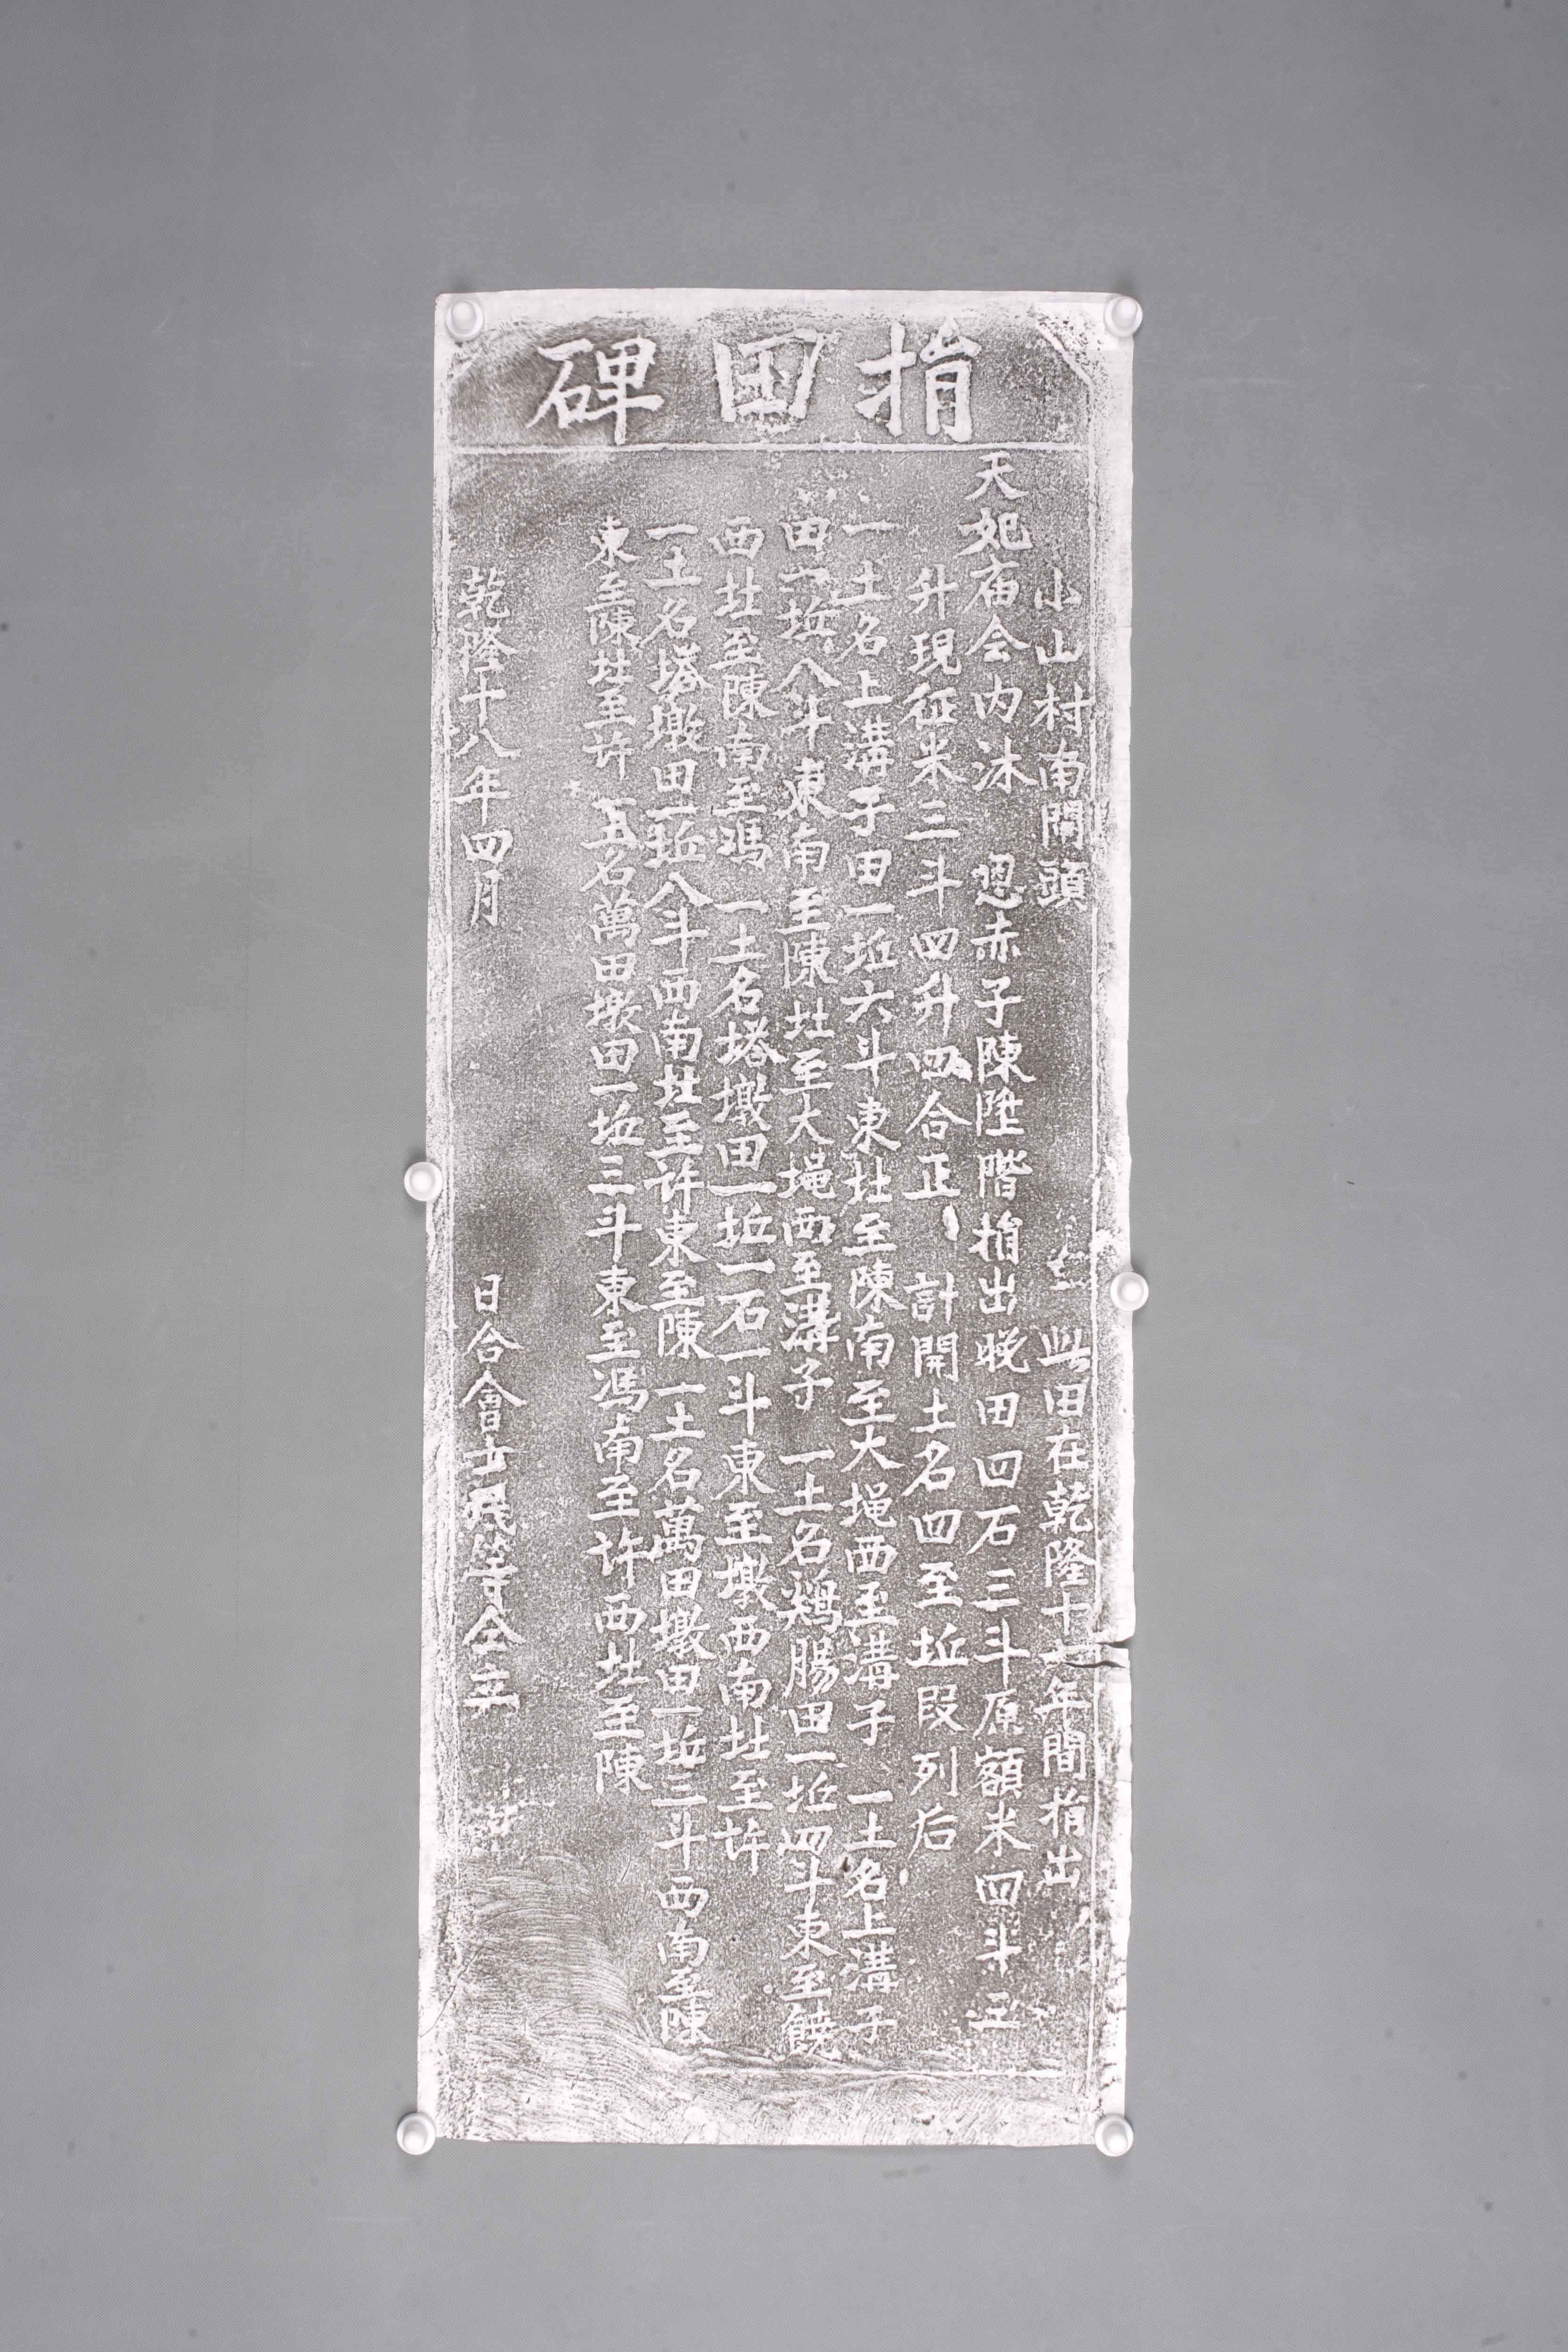 捐田碑
小山村南閘頭 此田在乾隆十年間捐出
天妃庙会内沐 恩赤子陳陞階捐出晚田四石三斗原額米四斗三
升現征米三斗四升四合正 計開土名四至坵段列后
一土名上溝子田一坵六斗東北至陳南至大堘西至溝子 一土名上溝子
田一坵八斗東南至陳北至大堘西至溝子 一土名鷄腸田一坵四斗東至饒
西北至陳南至馮 一土名塔墩田一坵一石一斗東至墩西南北至许
一土名塔墩田一坵八斗西南北至许東至陳 一土名萬田墩田一坵三斗西南至陳
東至陳北至许 一土名萬田墩田一坵三斗東至馮南至许西北至陳
乾隆十八年四月 日合會士民等仝立